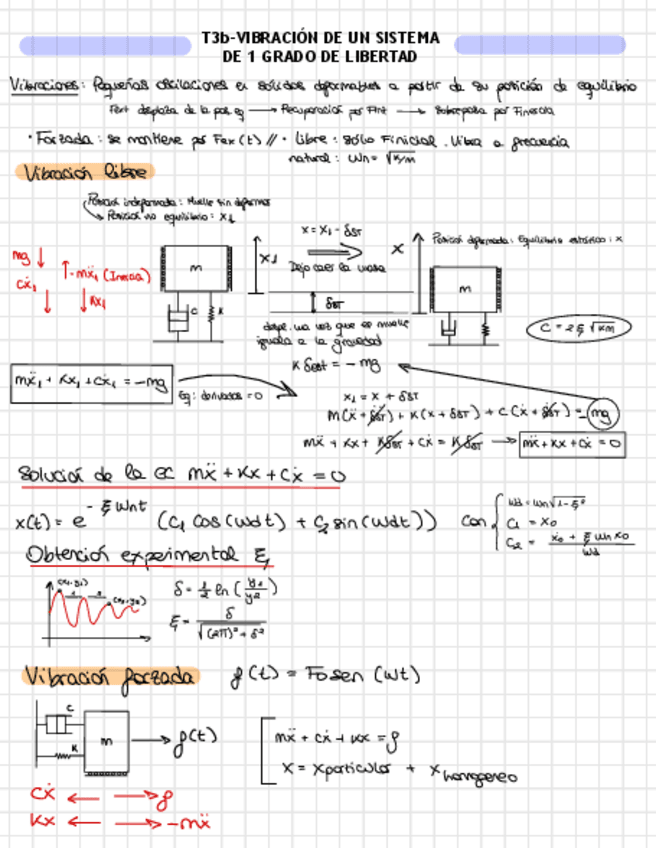 T3b-VIBRACIÓN DE UN SISTEMA
DE 1 GRADO DE LIBERTAD
Vibraciones: Pequeñas oscilaciones en sólidos deformables a partir de su posición de equilibrio
Fext desplaza de la pos. eq → Recuperación por Fint → Sobrepasa por Finercia
· Forzada: se mantiene por Fex(t) // · Libre: sólo Finicial. Vibra a frecuencia
natural: ωn = √k/m
Vibración libre
Posición indeformada: Muelle sin deformar
Posición no equilibrio: x₁
mg ↓
↑ -mẍ₁ (Inercia)
cẋ₁ ↓
↓ kx₁
m
c
k
x₁
x = x₁ - δST
Dejo caer la masa
δST
x
Posición deformada: Equilibrio estático: x
m
despl. una vez que se muelle
iguala a la gravedad
c = 2ξ√km
k δest = -mg
mẍ₁ + kx₁ + cẋ₁ = -mg
Eq: derivadas = 0
x₁ = x + δST
m(ẍ + δ̈ST) + k(x + δST) + c(ẋ + δ̇ST) = -mg
mẍ + kx + kδST + cẋ = kδST → mẍ + kx + cẋ = 0
Solución de la ec mẍ + kx + cẋ = 0
x(t) = e^(-ξωnt) (C₁ cos(ωdt) + C₂ sin(ωdt)) Con
ωd = ωn√1-ξ²
C₁ = x₀
C₂ = (ẋ₀ + ξωnx₀)/ωd
Obtención experimental ξ
(x₁, y₁)
(x₂, y₂)
1 2
δ = 1/2 ln (y₁/y₂)
ξ = δ/√(2π)² + δ²
Vibración forzada f(t) = F₀sen(ωt)
c
k
m
→ f(t)
mẍ + cẋ + kx = f
x = x particular + x homogéneo
cẋ ← → f
kx ← → -mẍ